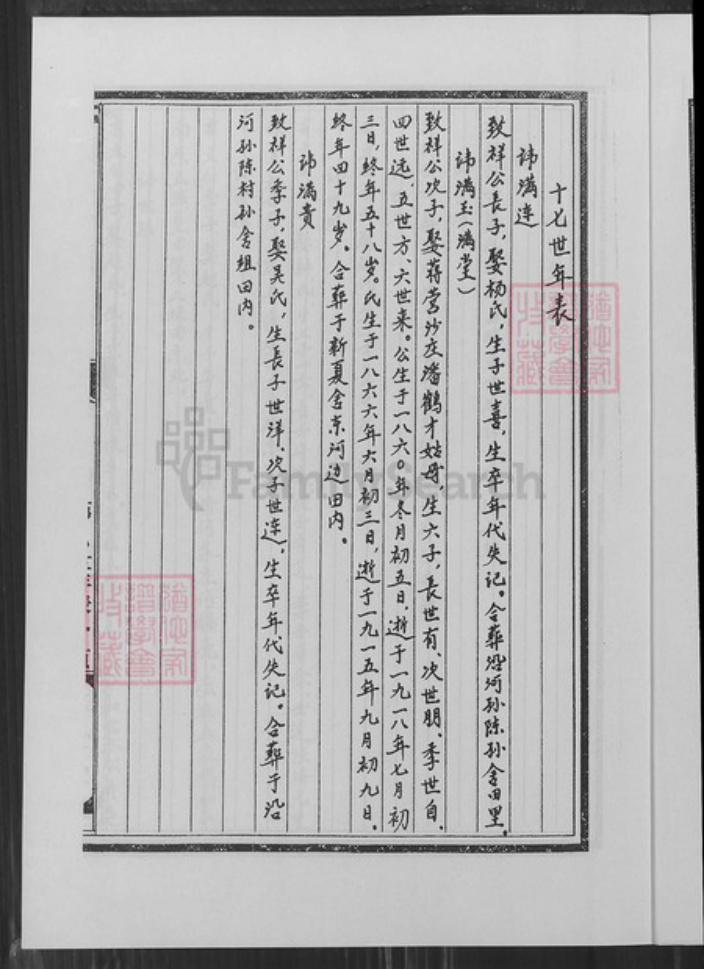 十七世年表
讳满连
致祥公長子，娶杨氏，生子世喜，生卒年代失记。合葬沿河孙陈孙舍田里。
讳满玉（满堂）
致祥公次子，娶蒋营沙庄潘鹤才姑母，生六子，長世有、次世朋、季世自、
四世远、五世方、六世来。公生于一八六〇年冬月初五日，逝于一九一八年七月初
三日，终年五十八岁。氏生于一八六六年六月初三日，逝于一九一五年九月初九日。
终年四十九岁。合葬于新夏舍东河边田内。
讳满贵
致祥公季子，娶吴氏，生長子世洋、次子世连，生卒年代失记。合葬于沿
河孙陈村孙舍组田内。
FamilySearch